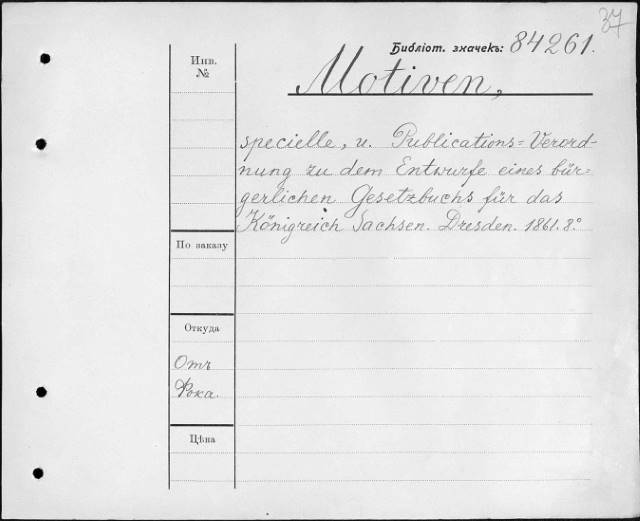 37
Библіот. значекъ: 84261.
Инв.
№
Motiven,
specielle, u. Publications=Verord-
nung zu dem Entwurfe eines bür=
gerlichen Gesetzbuchs für das
Königreich Sachsen. Dresden. 1861. 8.°
По заказу
Откуда
Отъ
Фока.
Цѣна